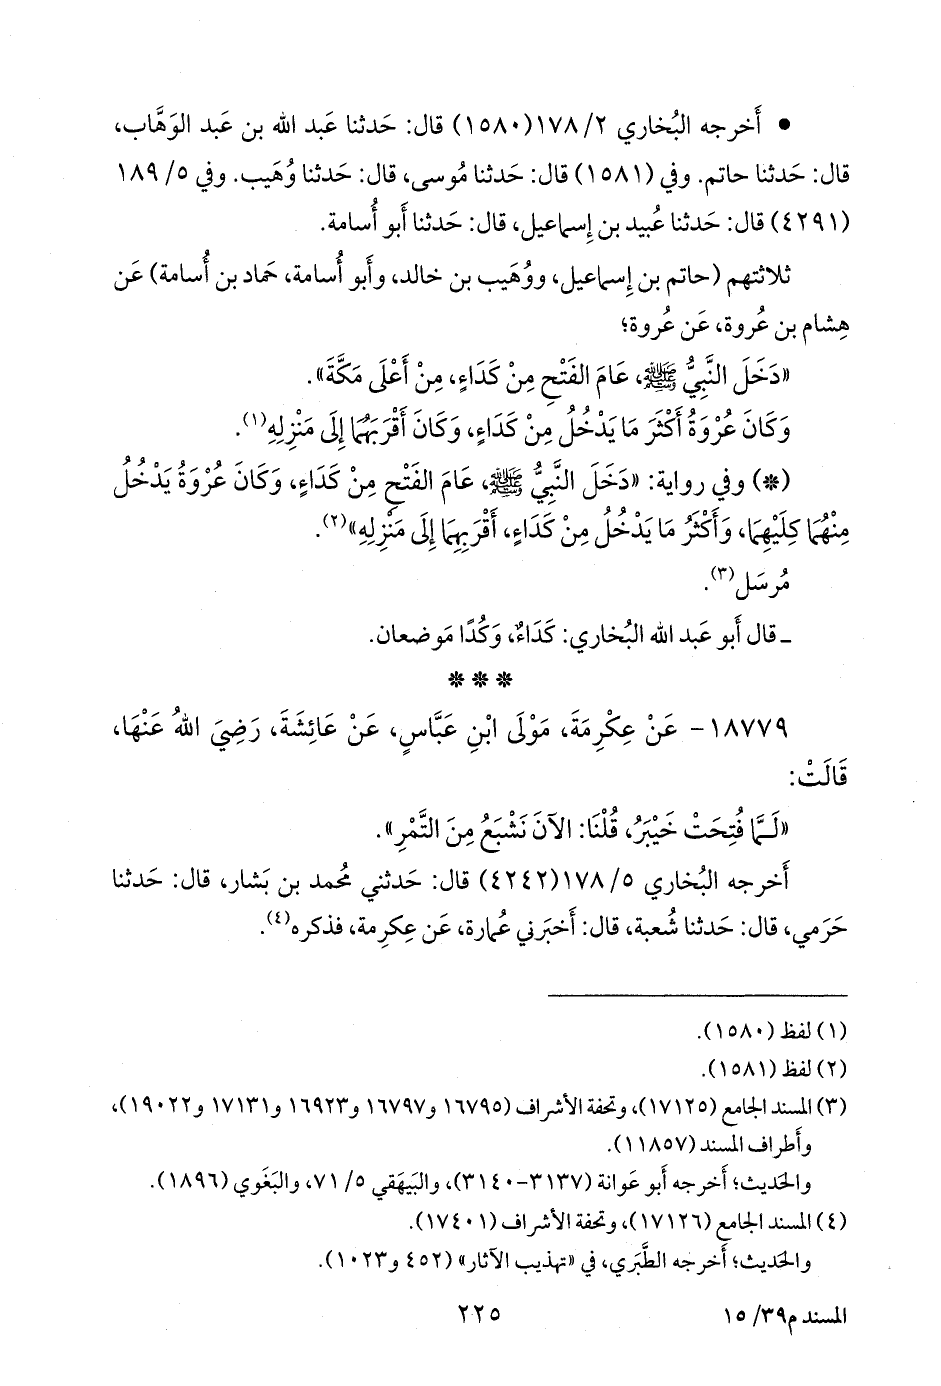 • أَخرجه البُخاري ٢/ ١٧٨(١٥٨٠) قال: حَدثنا عَبد الله بن عَبد الوَهَّاب،
قال: حَدثنا حاتم. وفي (١٥٨١) قال: حَدثنا مُوسى، قال: حَدثنا وُهَيب. وفي ٥/ ١٨٩
(٤٢٩١) قال: حَدثنا عُبيد بن إِسماعيل، قال: حَدثنا أَبو أُسامة.
ثلاثتهم (حاتم بن إِسماعيل، ووُهَيب بن خالد، وأَبو أُسامة، حماد بن أُسامة) عَن
هِشام بن عُروة، عَن عُروة؛
«دَخَلَ النَّبِيُّ ﷺ، عَامَ الفَتْحِ مِنْ كَدَاءٍ، مِنْ أَعْلَى مَكَّةَ».
وَكَانَ عُرْوَةُ أَكْثَرَ مَا يَدْخُلُ مِنْ كَدَاءٍ، وَكَانَ أَقْرَبَهُمَا إِلَى مَنْزِلِهِ(١).
(*) وفي رواية: «دَخَلَ النَّبِيُّ ﷺ، عَامَ الفَتْحِ مِنْ كَدَاءٍ، وَكَانَ عُرْوَةُ يَدْخُلُ
مِنْهُمَا كِلَيْهِمَا، وَأَكْثَرُ مَا يَدْخُلُ مِنْ كَدَاءٍ، أَقْرَبِهِمَا إِلَى مَنْزِلِهِ»(٢).
مُرسَل(٣).
ـ قال أَبو عَبد الله البُخاري: كَدَاءٌ، وَكُدًا مَوضعان.
* * *
١٨٧٧٩- عَنْ عِكْرِمَةَ، مَوْلَى ابْنِ عَبَّاسٍ، عَنْ عَائِشَةَ، رَضِيَ اللهُ عَنْهَا،
قَالَتْ:
«لَـمَّا فُتِحَتْ خَيْبَرُ، قُلْنَا: الآنَ نَشْبَعُ مِنَ التَّمْرِ».
أَخرجه البُخاري ٥/ ١٧٨(٤٢٤٢) قال: حَدثني مُحمد بن بَشار، قال: حَدثنا
حَرَمي، قال: حَدثنا شُعبة، قال: أَخبَرني عُمارة، عَن عِكرِمة، فذكره(٤).
(١) لفظ (١٥٨٠).
(٢) لفظ (١٥٨١).
(٣) المسند الجامع (١٧١٢٥)، وتحفة الأشراف (١٦٧٩٥ و١٦٧٩٧ و١٦٩٢٣ و١٧١٣١ و١٩٠٢٢)،
وأَطراف المسند (١١٨٥٧).
والحَديث؛ أَخرجه أَبو عَوانة (٣١٣٧-٣١٤٠)، والبَيهَقي ٥/ ٧١، والبَغَوي (١٨٩٦).
(٤) المسند الجامع (١٧١٢٦)، وتحفة الأشراف (١٧٤٠١).
والحَديث؛ أَخرجه الطَّبَري، في «تهذيب الآثار» (٤٥٢ و١٠٢٣).
المسند م٣٩/ ١٥
٢٢٥